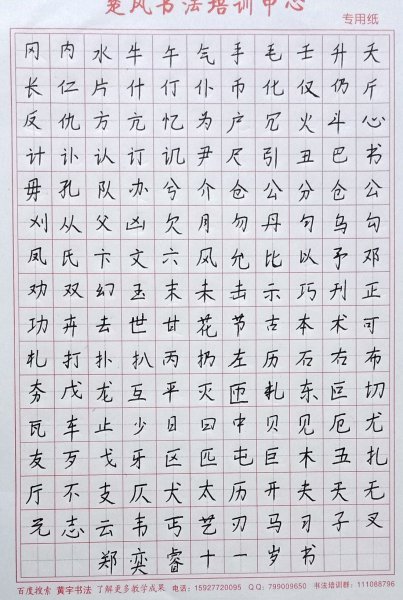 楚风书法培训中心
专用纸
冈内水牛午气手毛壬升夭
长仁片什仃仆币化仅仍斤
反仇方亢忆为户冗火斗心
计讣认订讥尹尺引丑巴书
毋孔队办兮介仓公分仓公
刈从父凶欠月勿丹匀乌勾
凤氏卞文六风允比以予邓
劝双幻玉末未击示巧刊正
功卉去世甘花节古本术可
札打扑扒丙扔左历石右布
夯戊龙互平灭匝轧东区切
瓦车止少日曰中贝见厄尤
友歹戈牙区匹屯巨木五扎
厅不支仄犬太历开夫天无
元志云韦丐艺刃马习子叉
郑奕睿十一岁书
百度搜索 黄宇书法 了解更多教学成果 电话：15927720095 QQ：799009650 书法培训群：111088796